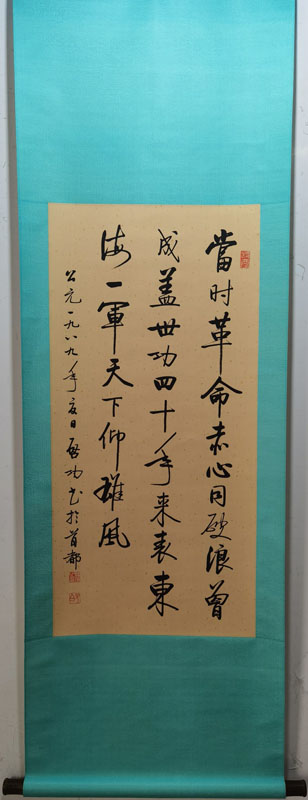 當时革命赤心同破浪曾
成盖世功四十年来表東
海一軍天下仰雄風
公元一九八九年夏日啓功书於首都